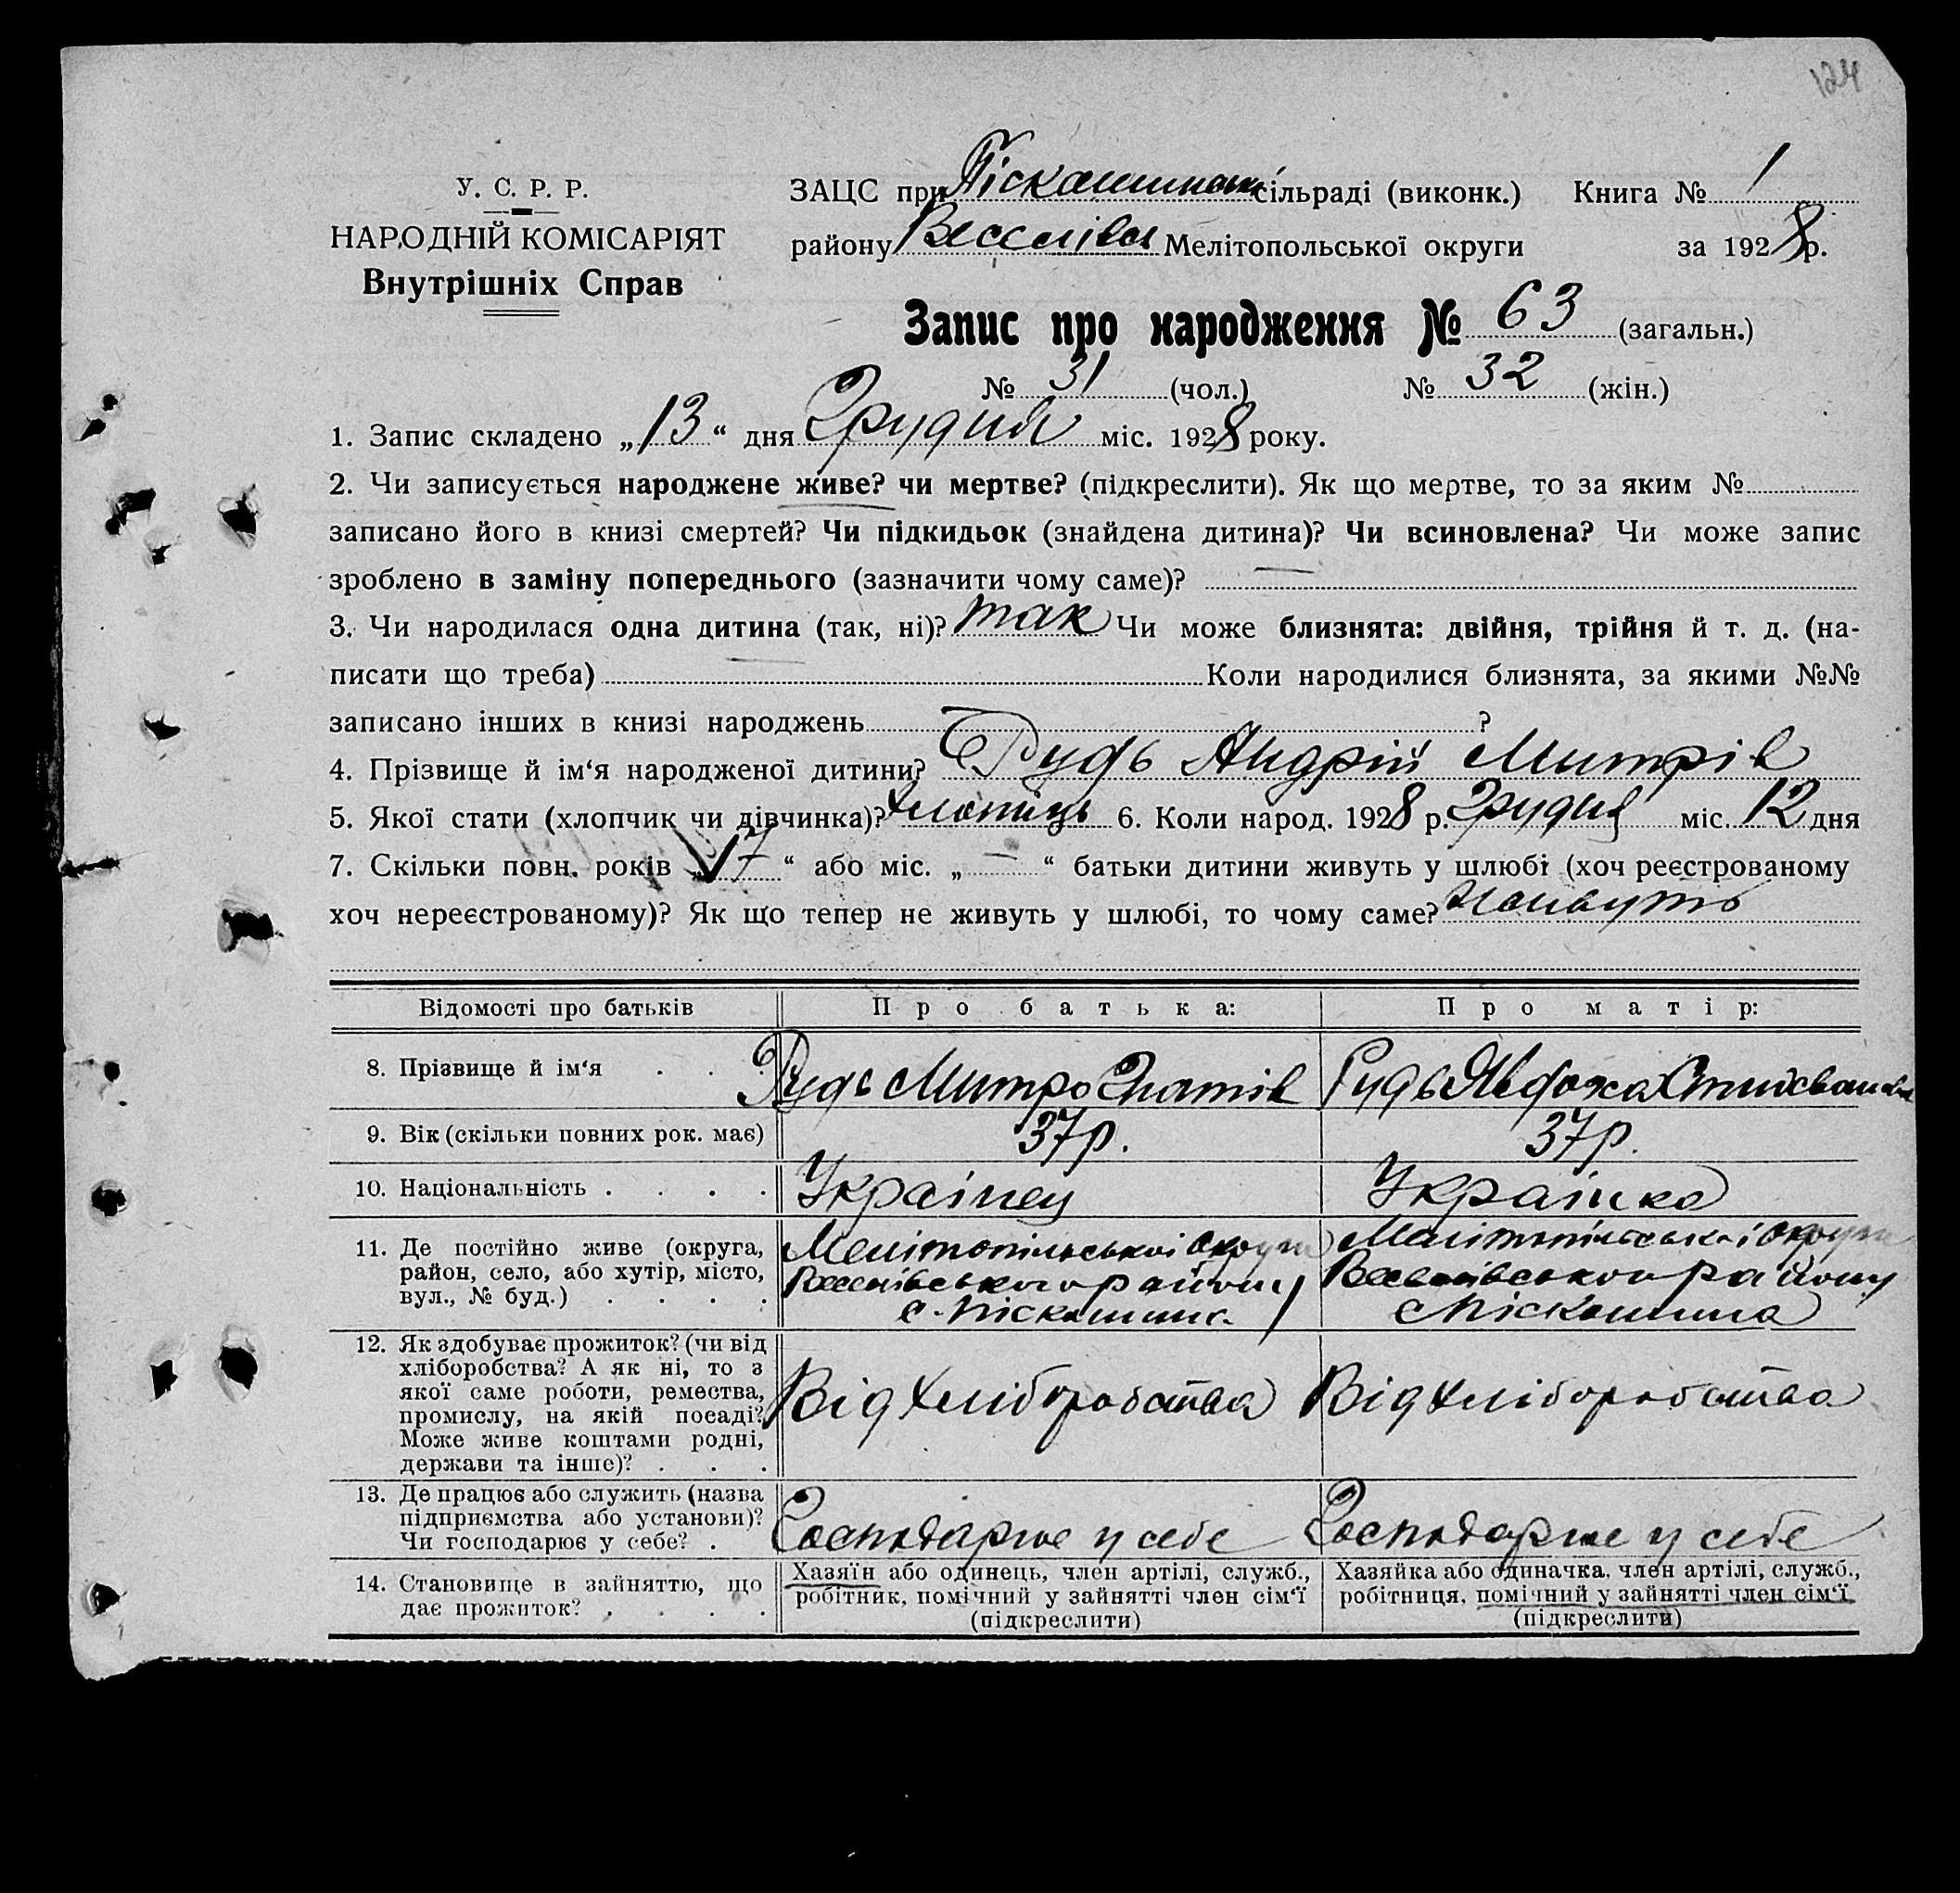 124
У. С. Р. Р.
НАРОДНІЙ КОМІСАРІЯТ
Внутрішніх Справ
ЗАЦС при Піскошинські сільраді (виконк.) Книга № 1
району Веселівськ Мелітопольської округи за 1928 р.
Запис про народження № 63 (загальн.)
№ 31 (чол.) № 32 (жін.)
1. Запис складено „13“ дня Грудня міс. 1928 року.
2. Чи записується народжене живе? чи мертве? (підкреслити). Як що мертве, то за яким №
записано його в книзі смертей? Чи підкидьок (знайдена дитина)? Чи всиновлена? Чи може запис
зроблено в заміну попереднього (зазначити чому саме)? —
3. Чи народилася одна дитина (так, ні)? так Чи може близнята: двійня, трійня й т. д. (на-
писати що треба) — Коли народилися близнята, за якими №№
записано інших в книзі народжень ?
4. Прізвище й ім‘я народженої дитини? Рудь Андрій Митрів
5. Якої стати (хлопчик чи дівчинка)? Хлопіць 6. Коли народ. 1928 р. Грудня міс. 12 дня
7. Скільки повн. років „ 7 “ або міс. „ — “ батьки дитини живуть у шлюбі (хоч реєстрованому
хоч нереєстрованому)? Як що тепер не живуть у шлюбі, то чому саме?
Відомості про батьків Про батька: Про матір:
8. Прізвище й ім‘я . . . Рудь Митро Гнатів Рудь Явдоха
9. Вік (скільки повних рок. має) 37р. 37р.
10. Національність . . . . Українец Українка
11. Де постійно живе (округа, район, село, або хутір, місто, вул., № буд.) . . . . Мелітопільської округи Веселівського району с. Піскошина Мелітопільської округи Веселівського району с Піскошина
12. Як здобуває прожиток? (чи від хліборобства? А як ні, то з якої саме роботи, ремества, промислу, на якій посаді? Може живе коштами родні, держави та інше)? . . . Від хліборобства Від хліборобства
13. Де працює або служить (назва підприємства або установи)? Чи господарює у себе? . Господарює у себе Господарює у себе
14. Становище в зайняттю, що дає прожиток? . . . . Хазяїн або одинець, член артілі, служб., робітник, помічний у зайнятті член сім‘ї (підкреслити) Хазяйка або одиначка, член артілі, служб., робітниця, помічний у зайнятті член сім‘ї (підкреслити)